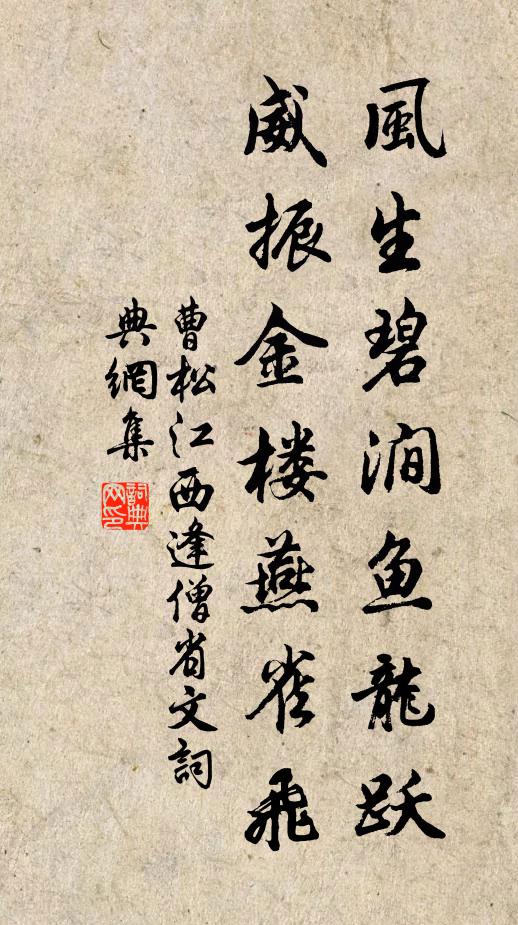 風生碧澗鱼龍跃
威振金楼燕雀飛
曹松江西逢僧省文詞
典網集
詞典
网印